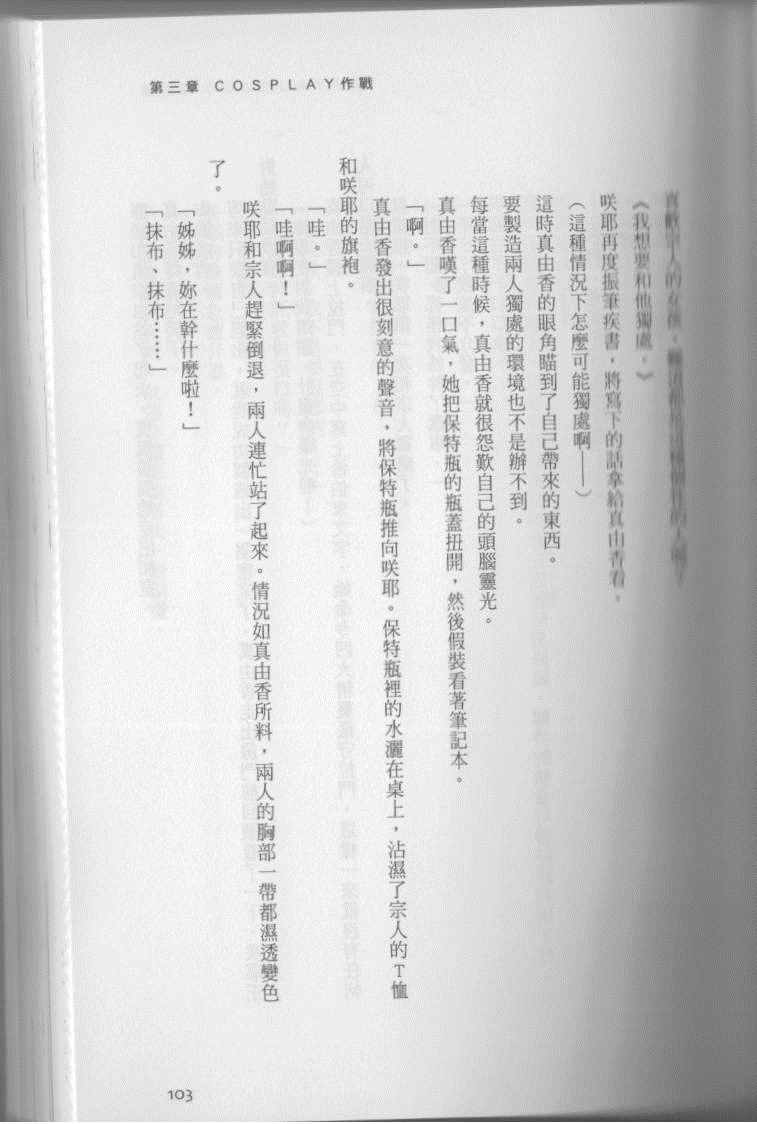 第三章 COSPLAY作戰
《我想要和他獨處。》
咲耶再度振筆疾書，將寫下的話拿給真由香看。
（這種情況下怎麼可能獨處啊——）
這時真由香的眼角瞄到了自己帶來的東西。
要製造兩人獨處的環境也不是辦不到。
每當這種時候，真由香就很怨歎自己的頭腦靈光。
真由香嘆了一口氣，她把保特瓶的瓶蓋扭開，然後假裝看著筆記本。
「啊。」
真由香發出很刻意的聲音，將保特瓶推向咲耶。保特瓶裡的水灑在桌上，沾濕了宗人的T恤
和咲耶的旗袍。
「哇。」
「哇啊啊！」
咲耶和宗人趕緊倒退，兩人連忙站了起來。情況如真由香所料，兩人的胸部一帶都濕透變色
了。
「姊姊，妳在幹什麼啦！」
「抹布、抹布……」
103